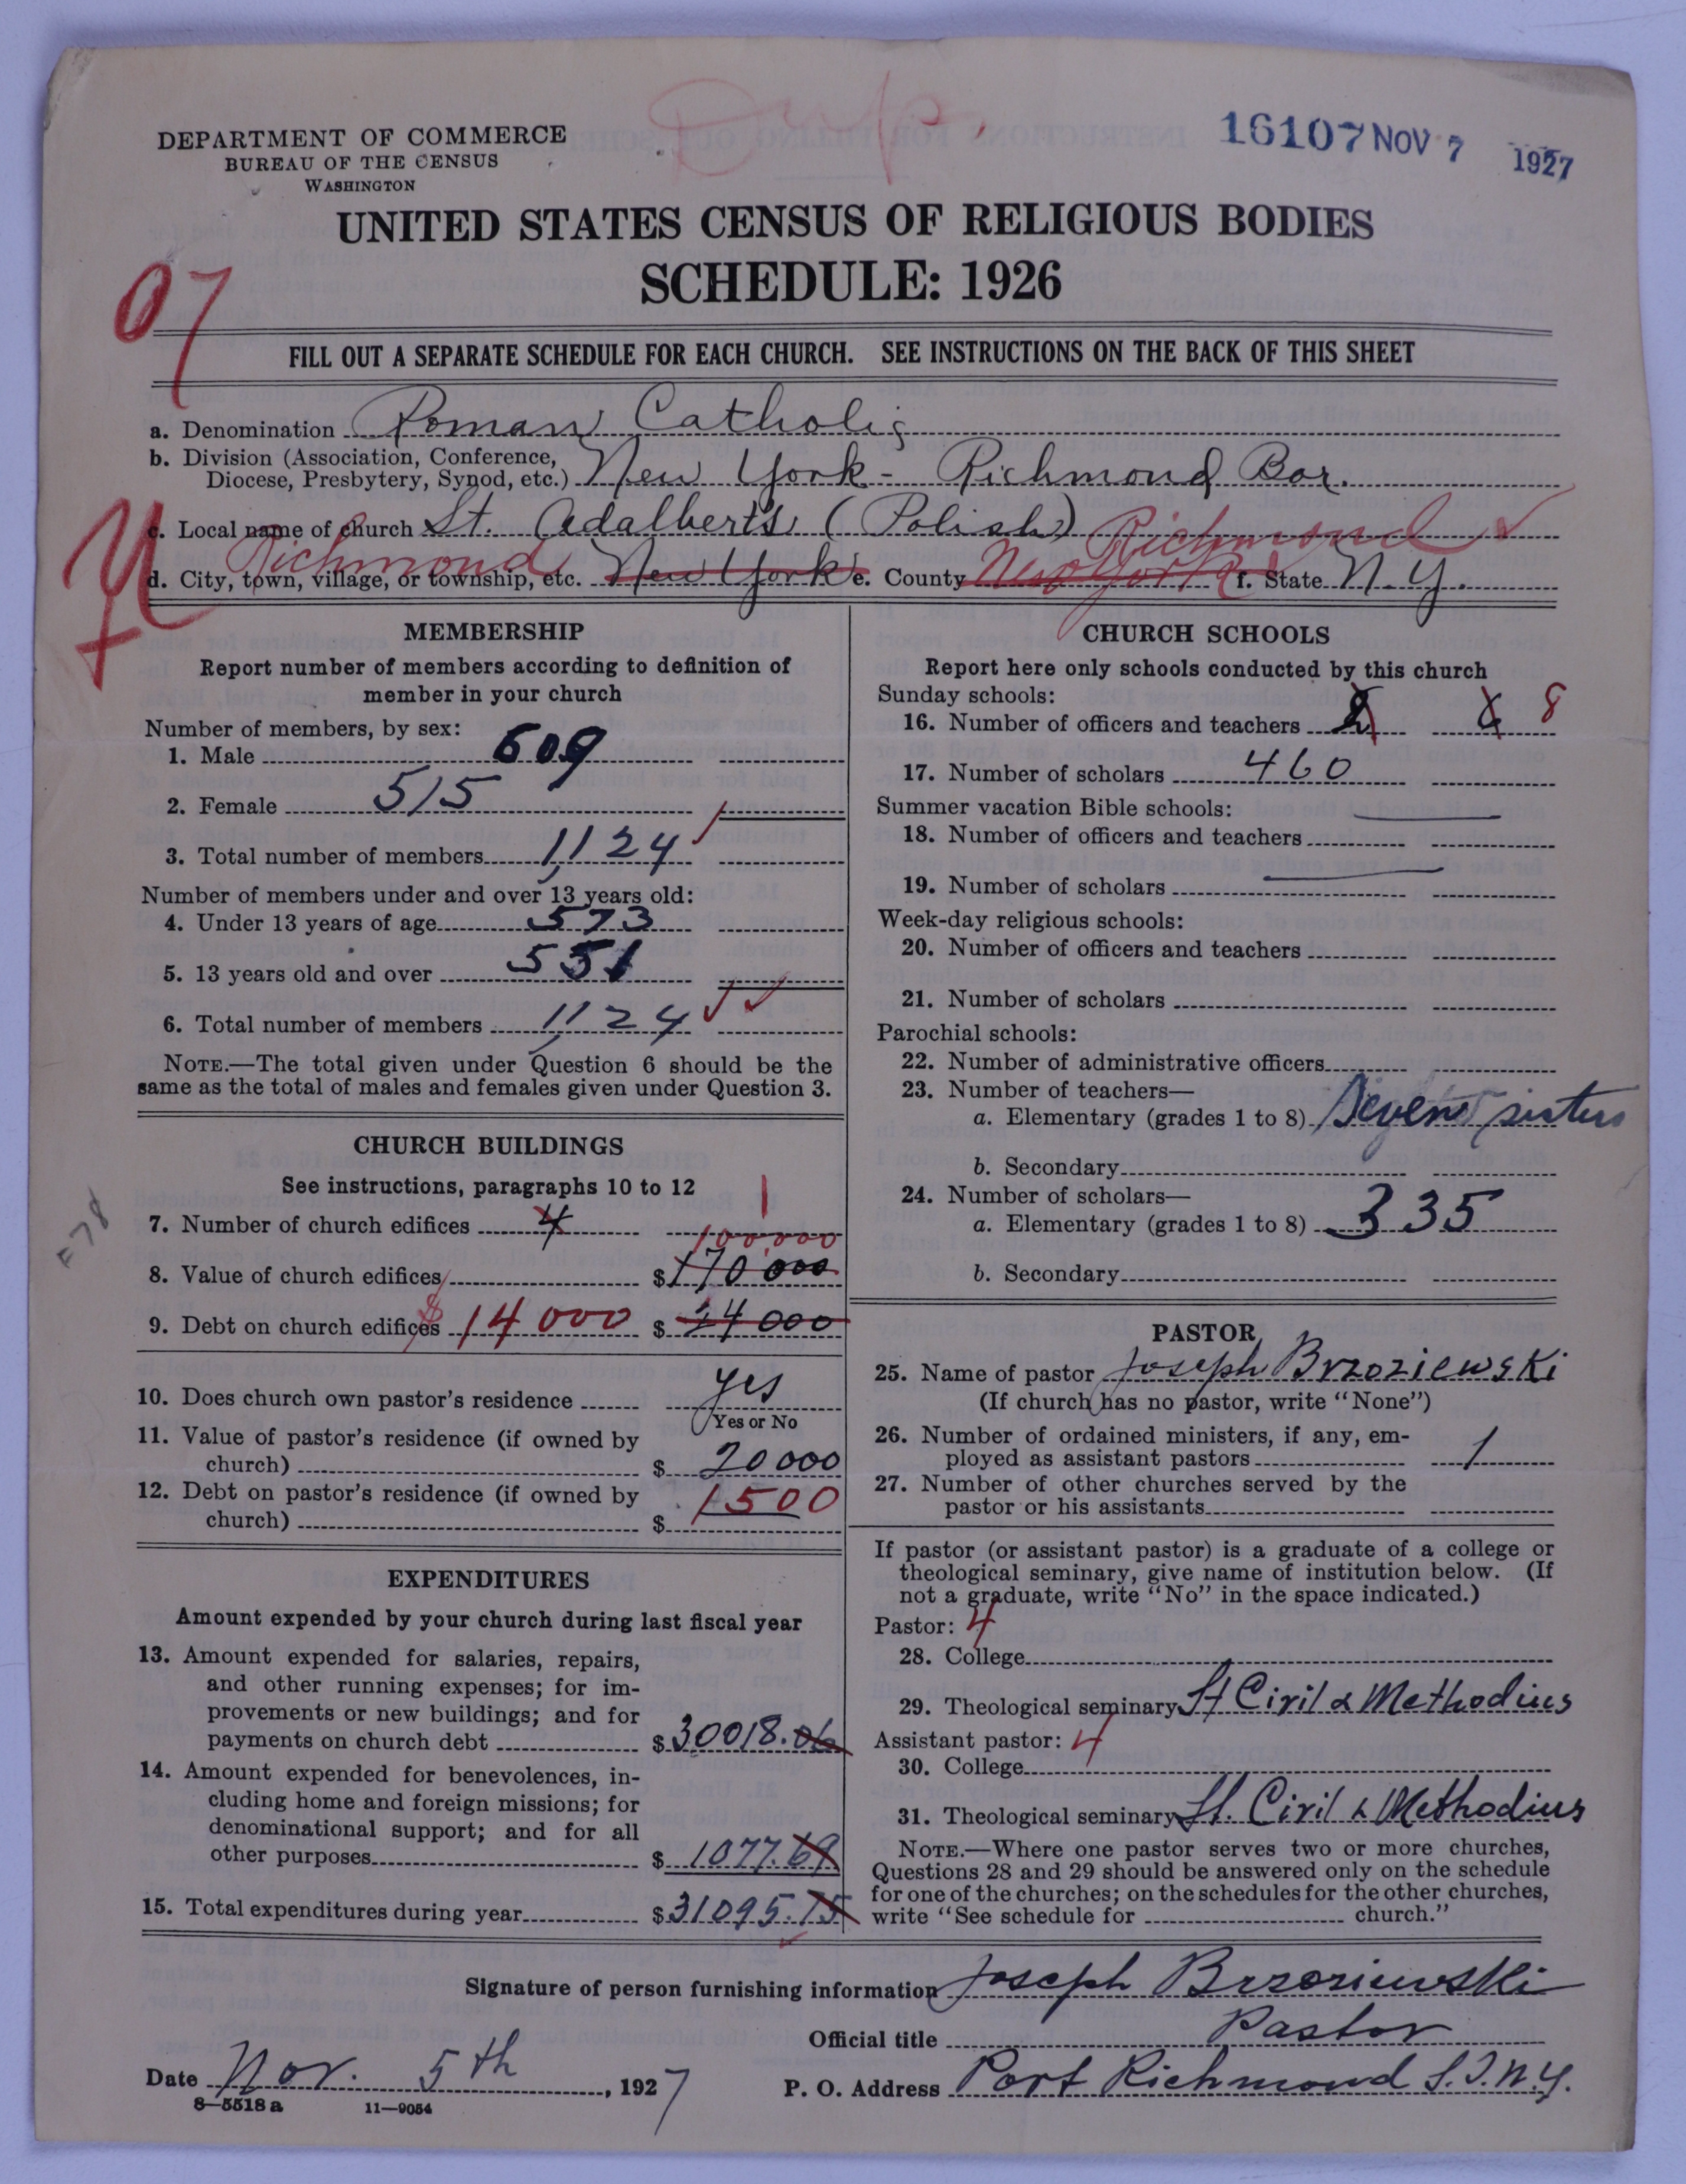 Dup.
16107 NOV 7 1927
DEPARTMENT OF COMMERCE
BUREAU OF THE CENSUS
WASHINGTON
UNITED STATES CENSUS OF RELIGIOUS BODIES
SCHEDULE: 1926
07
FILL OUT A SEPARATE SCHEDULE FOR EACH CHURCH. SEE INSTRUCTIONS ON THE BACK OF THIS SHEET
a. Denomination Roman Catholic
b. Division (Association, Conference,
Diocese, Presbytery, Synod, etc.) New York - Richmond Bor.
c. Local name of church St. Adalberts (Polish)
Richmond Richmond ✓
d. City, town, village, or township, etc. New York e. County New York f. State N.Y.
MEMBERSHIP
Report number of members according to definition of
member in your church
Number of members, by sex:
1. Male 609
2. Female 515
3. Total number of members 1,124 ✓
Number of members under and over 13 years old:
4. Under 13 years of age 573
5. 13 years old and over 551
6. Total number of members 1,124 ✓ ✓
NOTE.—The total given under Question 6 should be the
same as the total of males and females given under Question 3.
CHURCH BUILDINGS
See instructions, paragraphs 10 to 12
7. Number of church edifices 4 1
100,000
8. Value of church edifices $170000
9. Debt on church edifices $14000 $ 14000
10. Does church own pastor's residence yes
Yes or No
11. Value of pastor's residence (if owned by
church) $ 20000
12. Debt on pastor's residence (if owned by
church) $ 1500
EXPENDITURES
Amount expended by your church during last fiscal year
13. Amount expended for salaries, repairs,
and other running expenses; for im-
provements or new buildings; and for
payments on church debt $ 30018.06
14. Amount expended for benevolences, in-
cluding home and foreign missions; for
denominational support; and for all
other purposes $ 1077.69
15. Total expenditures during year $ 31095.75
CHURCH SCHOOLS
Report here only schools conducted by this church
Sunday schools:
16. Number of officers and teachers 8
17. Number of scholars 460
Summer vacation Bible schools:
18. Number of officers and teachers
19. Number of scholars
Week-day religious schools:
20. Number of officers and teachers
21. Number of scholars
Parochial schools:
22. Number of administrative officers
23. Number of teachers—
a. Elementary (grades 1 to 8) Seven sisters
b. Secondary
24. Number of scholars—
a. Elementary (grades 1 to 8) 335
b. Secondary
PASTOR
25. Name of pastor Joseph Brzoziewski
(If church has no pastor, write "None")
26. Number of ordained ministers, if any, em-
ployed as assistant pastors 1
27. Number of other churches served by the
pastor or his assistants
If pastor (or assistant pastor) is a graduate of a college or
theological seminary, give name of institution below. (If
not a graduate, write "No" in the space indicated.)
Pastor: 4
28. College
29. Theological seminary St Ciril & Methodius
Assistant pastor: 4
30. College
31. Theological seminary St. Ciril & Methodius
NOTE.—Where one pastor serves two or more churches,
Questions 28 and 29 should be answered only on the schedule
for one of the churches; on the schedules for the other churches,
write "See schedule for church."
Signature of person furnishing information Joseph Brzoziewski
Official title Pastor
Date Nov. 5th, 1927
P. O. Address Port Richmond S.I. N.Y.
8—5518 a 11—9054